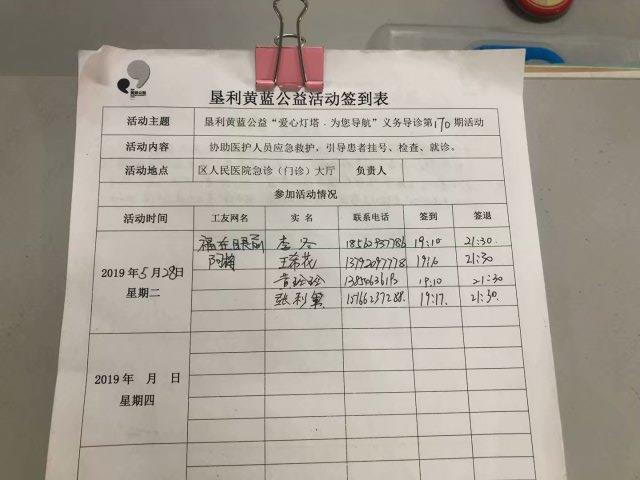 垦利黄蓝公益活动签到表
活动主题 垦利黄蓝公益“爱心灯塔．为您导航”义务导诊第170期活动
活动内容 协助医护人员应急救护，引导患者挂号、检查、就诊。
活动地点 区人民医院急诊（门诊）大厅 负责人
参加活动情况
活动时间 工友网名 实名 联系电话 签到 签退
福在眼前 李冬 19:10 21:30
2019年5月28日 阿梅 王希花 21:30
星期二 19:10 21:30
张利 19:17. 21:30
2019年 月 日
星期四